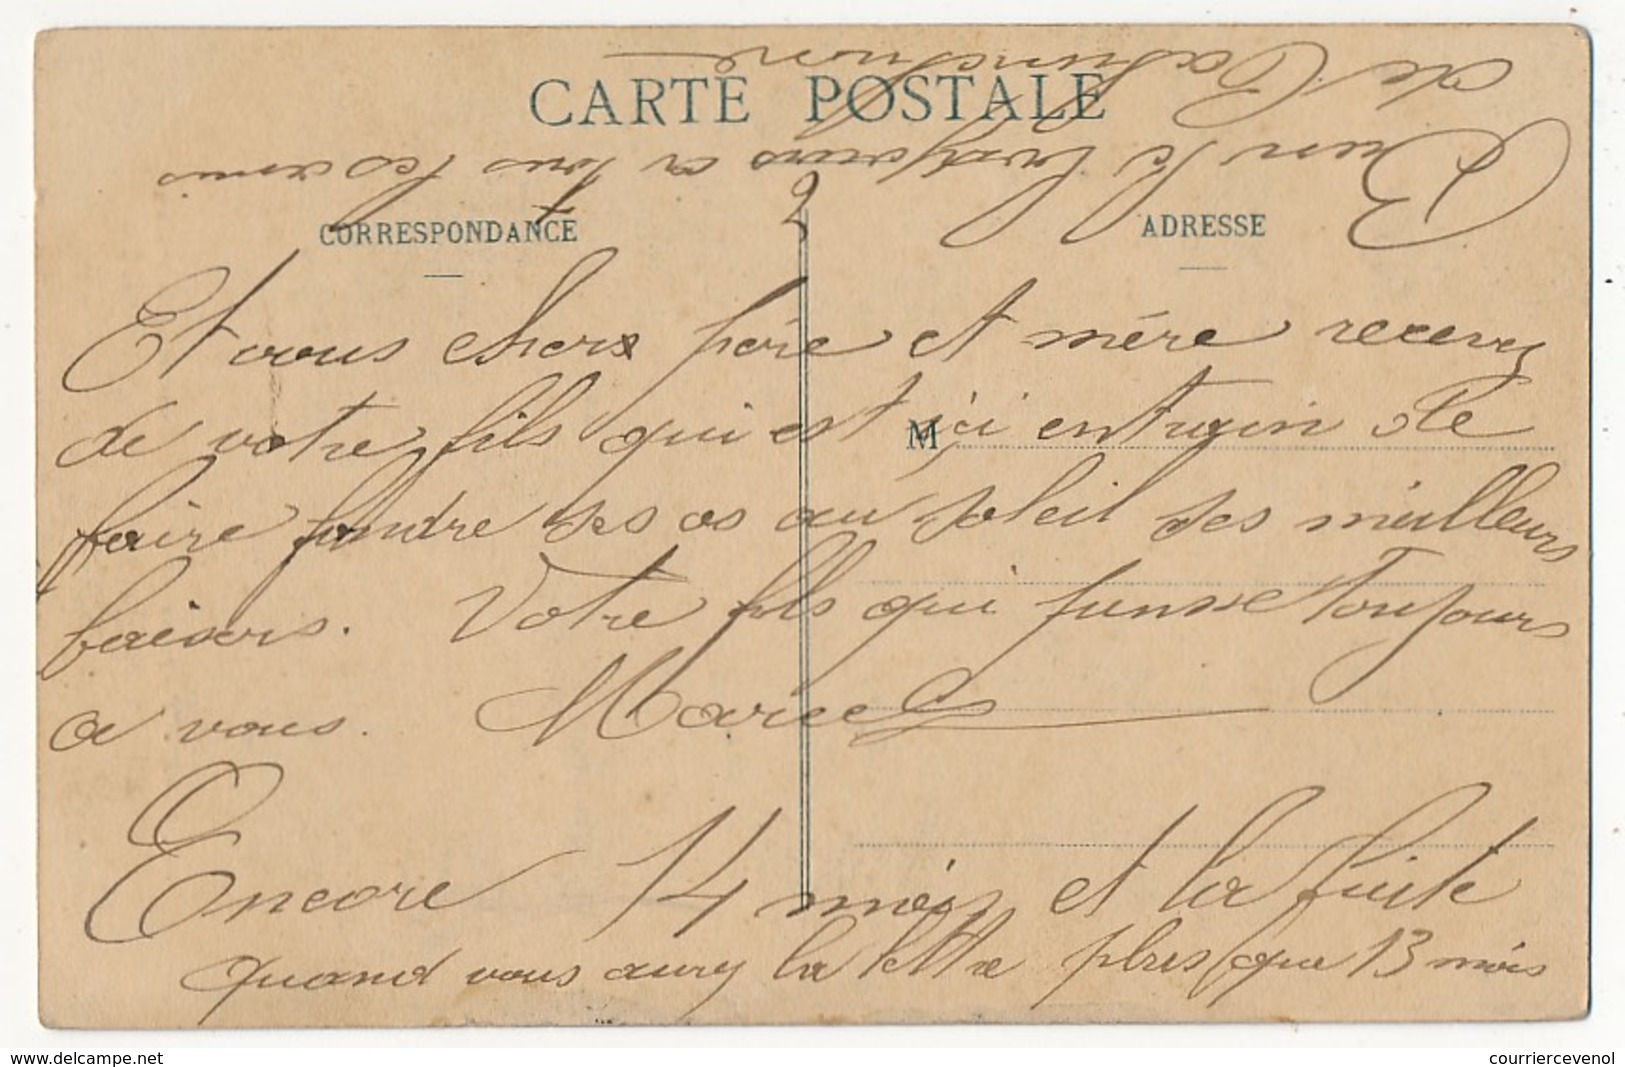 CARTE POSTALE
CORRESPONDANCE
ADRESSE
Et vous chers père et mère recevez
de votre fils qui est ici entrain de
M
faire fondre ses os au soleil ses meilleurs
baisers. Votre fils qui pense toujours
a vous. Marcel
Encore 14 mois et la fuite
quand vous aurez la lettre plus que 13 mois
Bien le bonjour a tous les amis
de
www.delcampe.net
courriercevenol